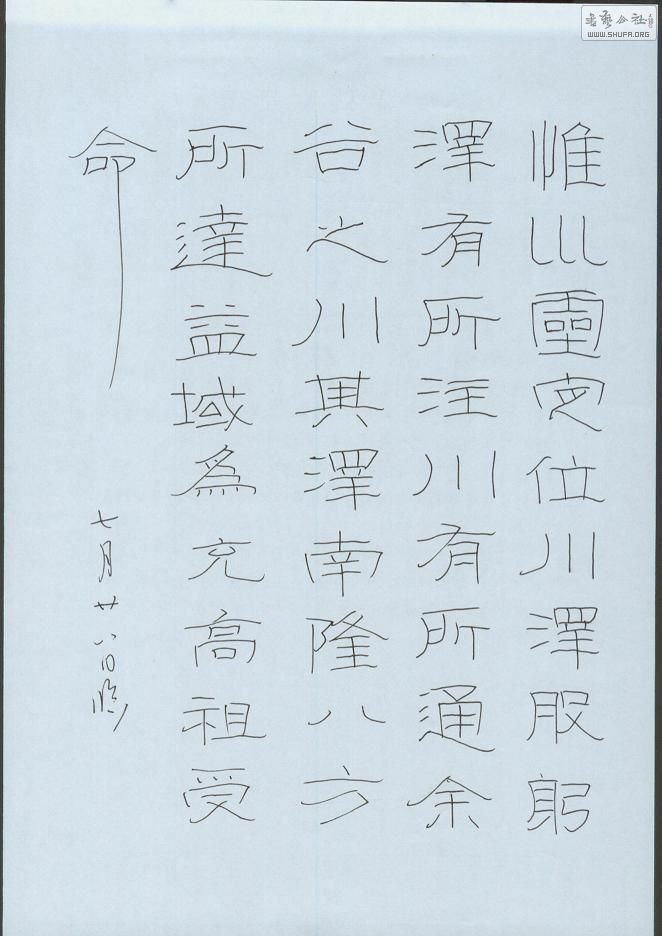 惟巛靈㝎位川澤股躬
澤有所注川有所通余
谷之川其澤南隆八方
所達益域為充高祖受
命
七月廿八日臨
WWW.SHUFA.ORG